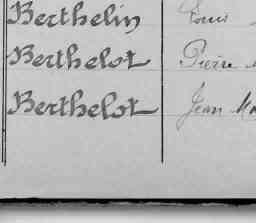 Berthelin Louis
Berthelot Pierre
Berthelot Jean Ma